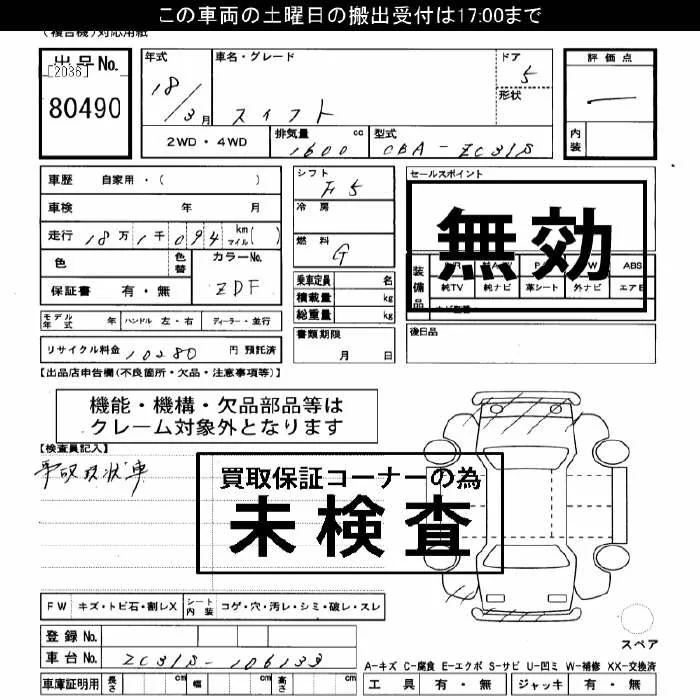 この車両の土曜日の搬出受付は17:00まで
(複合機)対応用紙
出品No.
[2036]
80490
年式
18/3月
車名・グレード
スイフト
ドア
5
形状
評価点
内装
2WD・4WD
排気量
1600 cc
型式
CBA-ZC31S
車歴 自家用・( )
車検 年 月
走行 18万1千094 km マイル( )
色
色替
カラーNo.
ZDF
保証書 有・無
シフト
F5
冷房
燃料
G
乗車定員 名
積載量 kg
総重量 kg
書類期限
月 日
セールスポイント
無効
装備品
ABS
純TV 純ナビ 革シート 外ナビ エアB
後日品
モデル年式 年 ハンドル 左・右 ディーラー・並行
リサイクル料金 10280 円 預託済
【出品店申告欄(不良箇所・欠品・注意事項等)】
機能・機構・欠品部品等は
クレーム対象外となります
【検査員記入】
事故現状車
買取保証コーナーの為
未検査
FW キズ・トビ石・割レX シート内装 コゲ・穴・汚レ・シミ・破レ・スレ
スペア
登録No.
車台No. ZC31S-106133
A-キズ C-腐食 E-エクボ S-サビ U-凹ミ W-補修 XX-交換済
車庫証明用 長さ cm 幅 cm 高さ cm
工具 有・無 ジャッキ 有・無